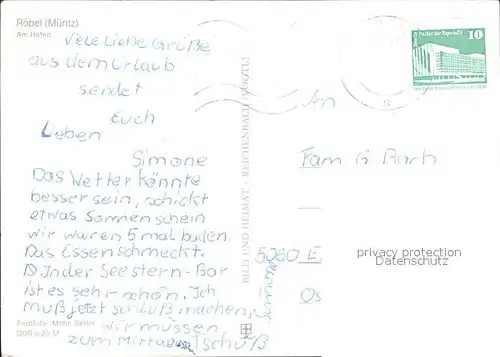 Röbel (Müritz)
Am Hafen
Viele Liebe Grüße
aus dem Urlaub
sendet
Euch
Leben
Simone
Das Wetter könnte
besser sein, schickt
etwas Sonnenschein
wir waren 5 mal baden.
Das Essen schmeckt.
In der Seestern-Bar
ist es sehr schön. Ich
muß jetzt schluß machen,
wir müssen
zum Mittag
schuß
Simone
Berlin
BILD UND HEIMAT · REICHENBACH (VOGTL)
Palast der Republik
10
An
Fam G Barh
5060 E.
Os
privacy protection
Datenschutz